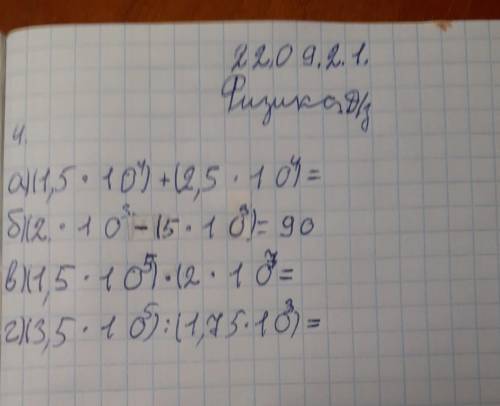 22.09.21.
Физика Д/з
4.
а)(1,5 · 10⁴) + (2,5 · 10⁴) =
б)(2 · 10³ - (5 · 10³) = 90
в)(1,5 · 10⁵) · (2 · 10⁷ =
г)(3,5 · 10⁵) : (1,75 · 10³) =